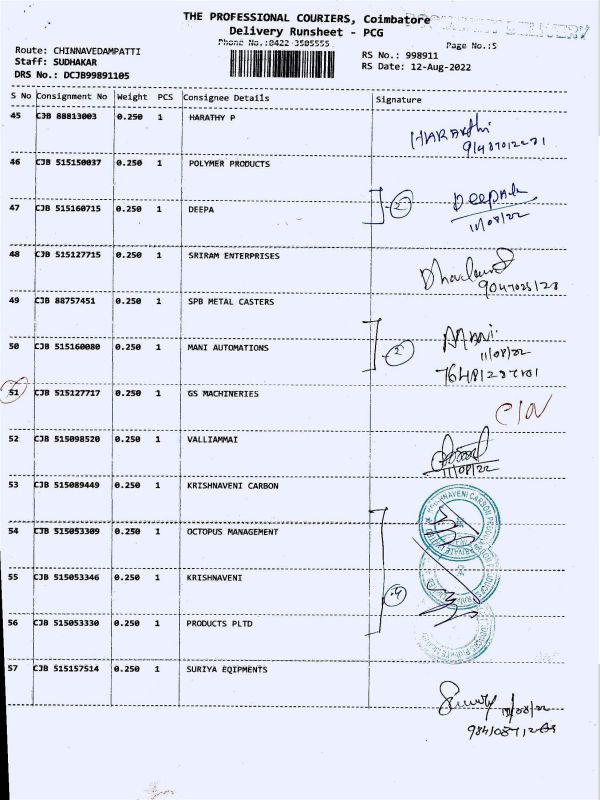 THE PROFESSIONAL COURIERS, Coimbatore
Delivery Runsheet - PCG
Phone No.:0422-3505555
Page No.:5
Route: CHINNAVEDAMPATTI
Staff: SUDHAKAR
DRS No.: DCJB99891105
RS No.: 998911
RS Date: 12-Aug-2022
S No Consignment No Weight PCS Consignee Details Signature
45 CJB 88813003 0.250 1 HARATHY P
46 CJB 515150037 0.250 1 POLYMER PRODUCTS
47 CJB 515160715 0.250 1 DEEPA
2
Deepak
11/08/22
48 CJB 515127715 0.250 1 SRIRAM ENTERPRISES
49 CJB 88757451 0.250 1 SPB METAL CASTERS
50 CJB 515160080 0.250 1 MANI AUTOMATIONS
2
Mani
11/08/22
51 CJB 515127717 0.250 1 GS MACHINERIES
C/N
52 CJB 515098520 0.250 1 VALLIAMMAI
11/08/22
53 CJB 515089449 0.250 1 KRISHNAVENI CARBON
54 CJB 515053309 0.250 1 OCTOPUS MANAGEMENT
55 CJB 515053346 0.250 1 KRISHNAVENI
4
56 CJB 515053330 0.250 1 PRODUCTS PLTD
57 CJB 515157514 0.250 1 SURIYA EQIPMENTS